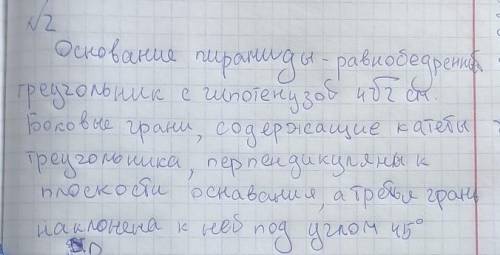 √2
Основание пирамиды - равнобедренный
треугольник с гипотенузой 4√2 см.
Боковые грани, содержащие катеты
треугольника, перпендикуляны к
плоскости оснавания, а третья грань
наклонена к ней под углом 45°